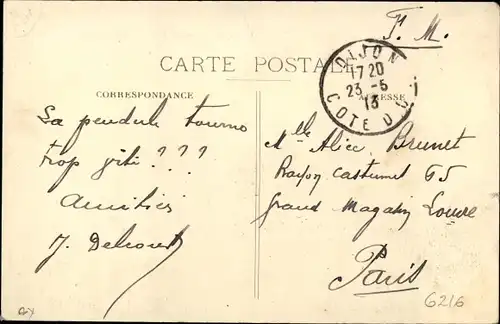 F. M.
CARTE POSTALE
DIJON
17 20
23 - 5
13
COTE D'OR
CORRESPONDANCE
ADRESSE
La pendule tourne
trop vite ? ? ?
Amitiés
J. Delcourt
Mlle Alice Brunet
Rayon costumes 65
Grand Magasin Louvre
Paris
6216